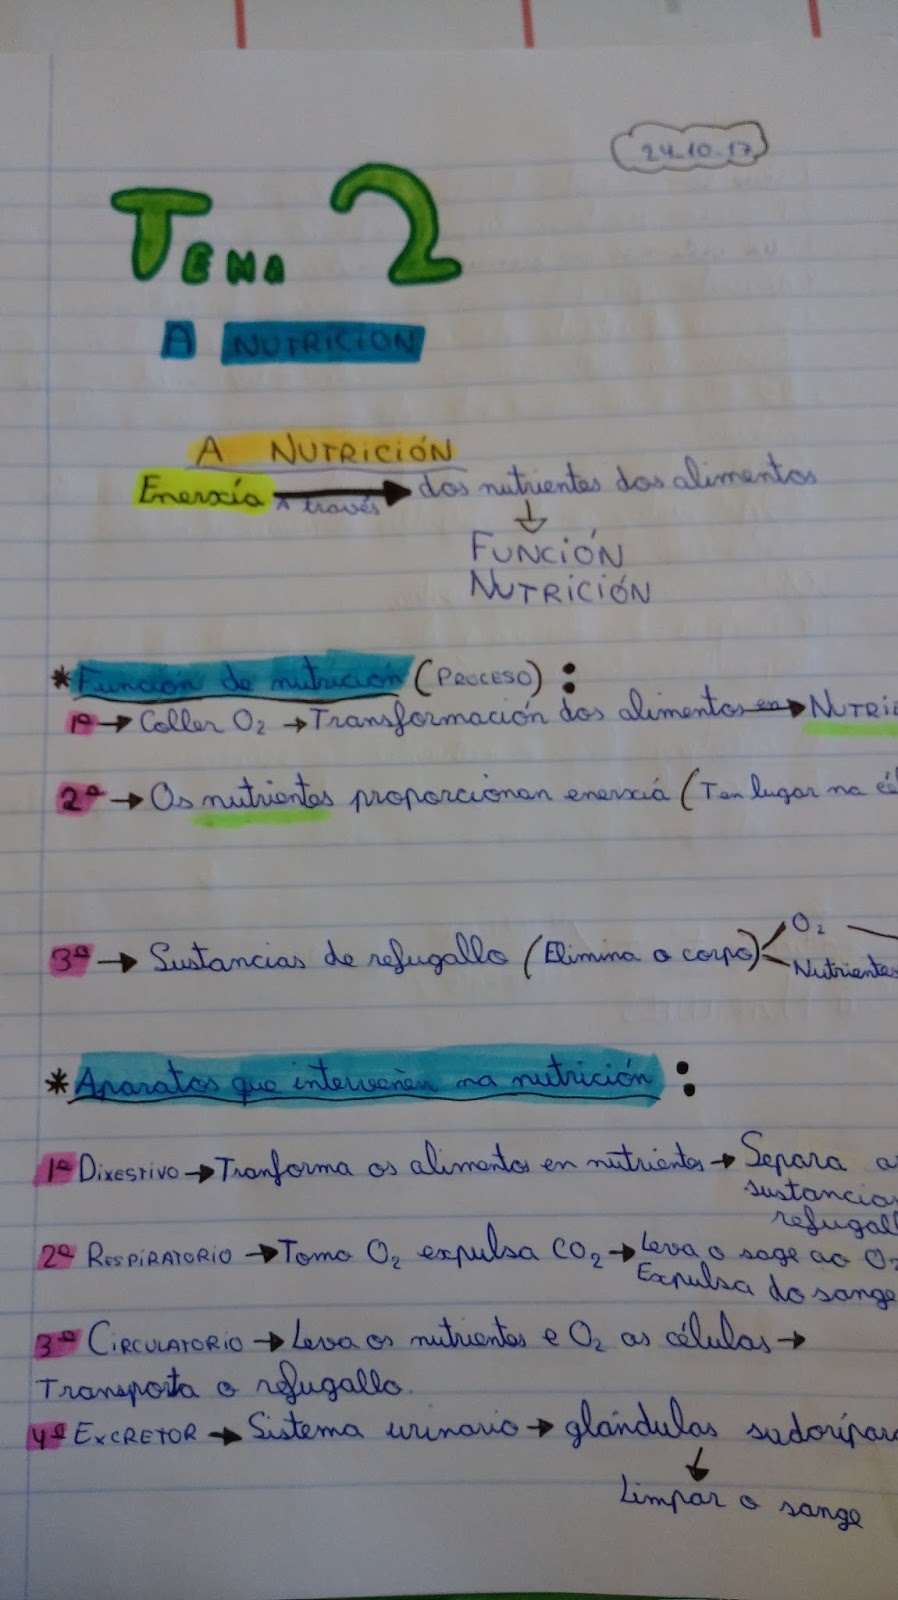 24-10-17
TEMA 2
A NUTRICION
A NUTRICIÓN
Enerxía A través dos nutrientes dos alimentos
FUNCIÓN
NUTRICIÓN
* Función de nutrición (PROCESO) :
1º → Coller O2 → Transformación dos alimentos en → NUTRI
2º → Os nutrientes proporcionan enerxiá (Ten lugar na cé
3º → Sustancias de refugallo (Elimina o corpo) O2
Nutrientes
* Aparatos que interveñen na nutrición :
1º DIXESTIVO → Tranforma os alimentos en nutrientes → Separa a
sustancias
refugall
2º RESPIRATORIO → Tomo O2 expulsa CO2 → Leva o sage ao O2
Expulsa do sange
3º CIRCULATORIO → Leva os nutrientes e O2 as células →
Transporta o refugallo.
4º EXCRETOR → Sistema urinario → glándulas sudorípar
Limpar o sange